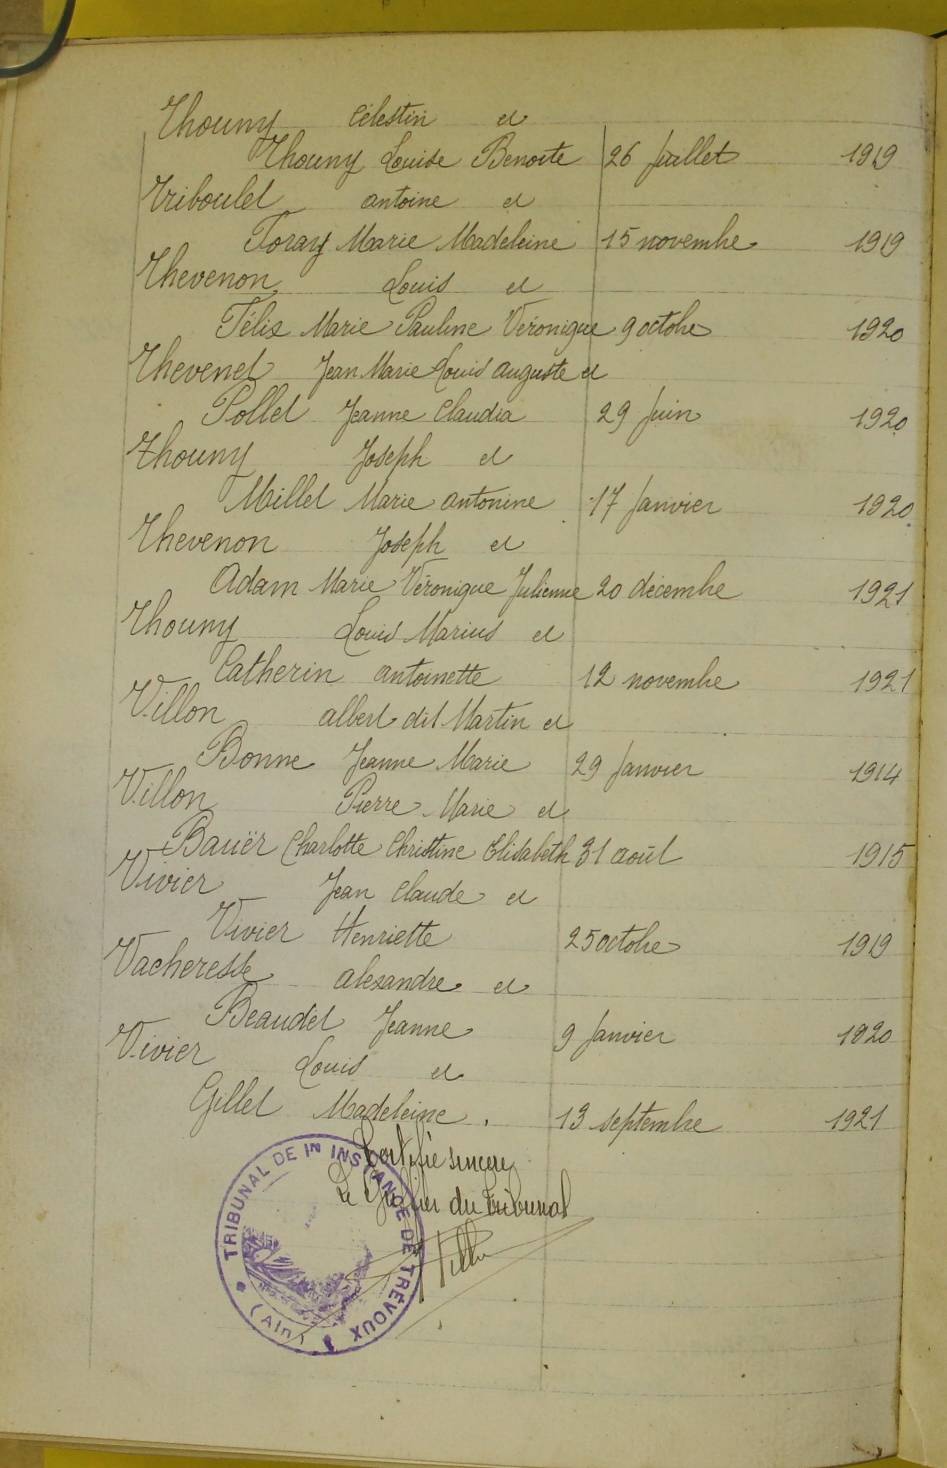 Thouny Célestin et
Thouny Louise Benoite 26 Juillet 1919
Triboulet antoine et
Foray Marie Madeleine 15 novembre 1919
Thevenon Louis et
Félix Marie Pauline Véronique 9 octobre 1920
Thevenet Jean Marie Louis auguste et
Pollet Jeanne Claudia 29 Juin 1920
Thouny Joseph et
Millet Marie antonine 17 Janvier 1920
Thevenon Joseph et
Adam Marie Véronique Julienne 20 décembre 1921
Thouny Louis Marius et
Catherin antoinette 12 novembre 1921
Villon albert dit Martin et
Bonne Jeanne Marie 29 Janvier 1914
Villon Pierre Marie et
Bauër Charlotte Christine Elisabeth 31 août 1915
Vivier Jean Claude et
Vivier Henriette 25 octobre 1919
Vacheresse alexandre et
Beaudet Jeanne 9 Janvier 1920
Vivier Louis et
Gillet Madeleine. 13 septembre 1921
Certifié sincère
Le Greffier du Tribunal
TRIBUNAL DE 1re INSTANCE DE TRÉVOUX
(Ain)